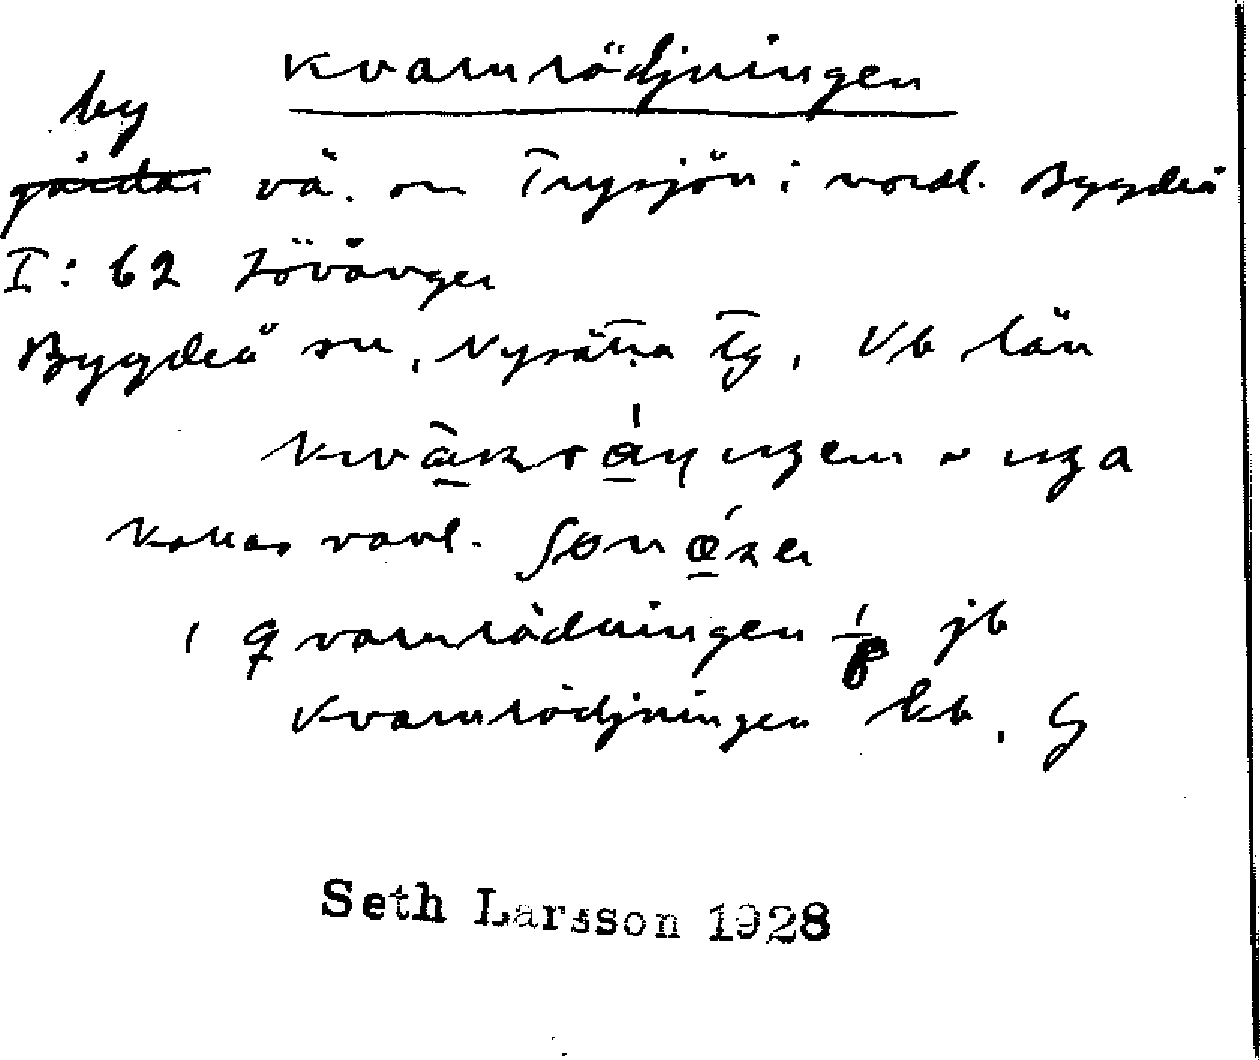 Kvarnrödjningen
by
gårdar vä. om Trysjön i nordl. Bygdeå
I: 62 Lövånger
Bygdeå sn, Nysätra tg, Vb län
kallas vanl.
1 Qvarnrödningen jb
Kvarnrödjningen kb, G
Seth Larsson 1928